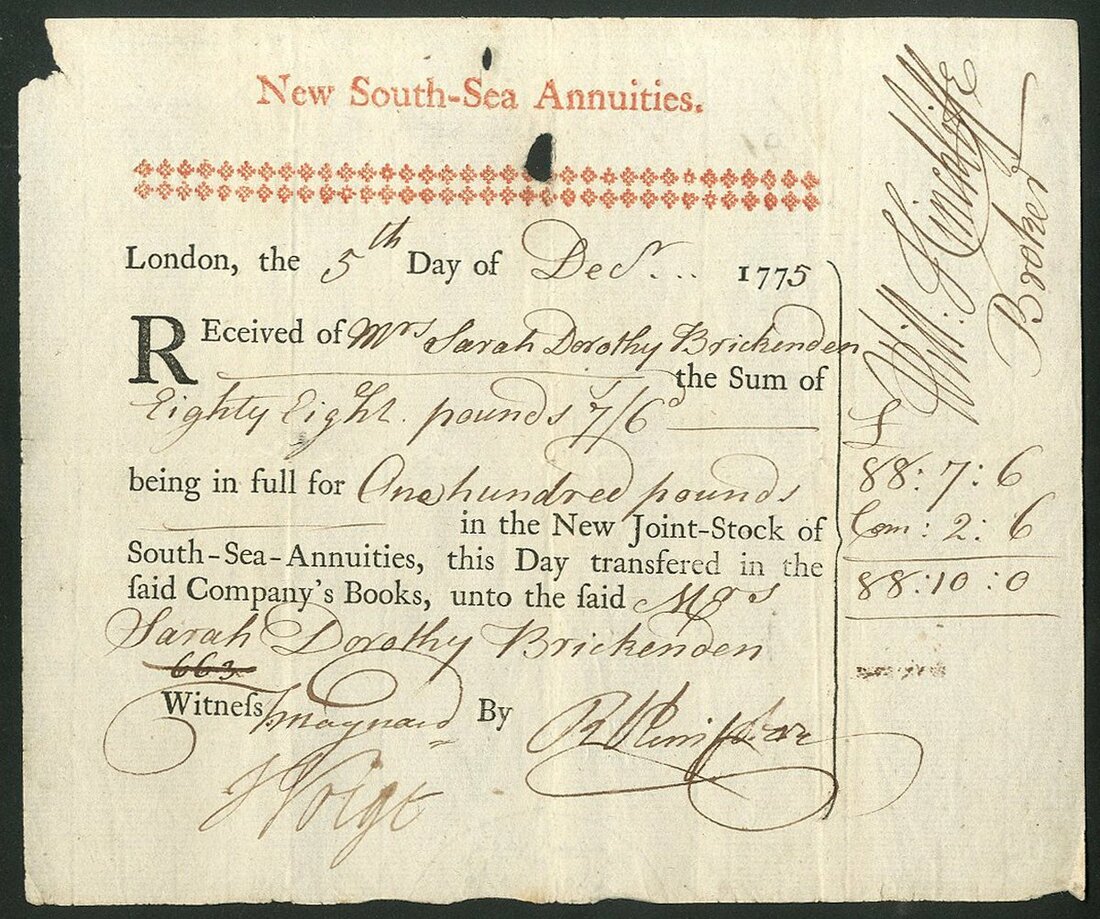 New South-Sea Annuities.
London, the 5th Day of Decr... 1775
REceived of Mrs Sarah Dorothy Brickenden
the Sum of
Eighty Eight pounds 7s/6d
being in full for One hundred pounds
in the New Joint-Stock of
South-Sea-Annuities, this Day transfered in the
ſaid Company's Books, unto the ſaid Mrs
Sarah Dorothy Brickenden
663
Witneſs Maynard By
J Voigt
Will: Hinchliffe
Broker
£
88:7:6
Com: 2:6
88:10:0